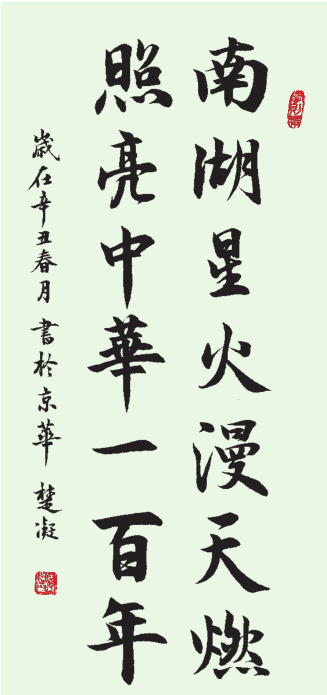 南湖星火漫天燃
照亮中華一百年
歲在辛丑春月書於京華楚凝